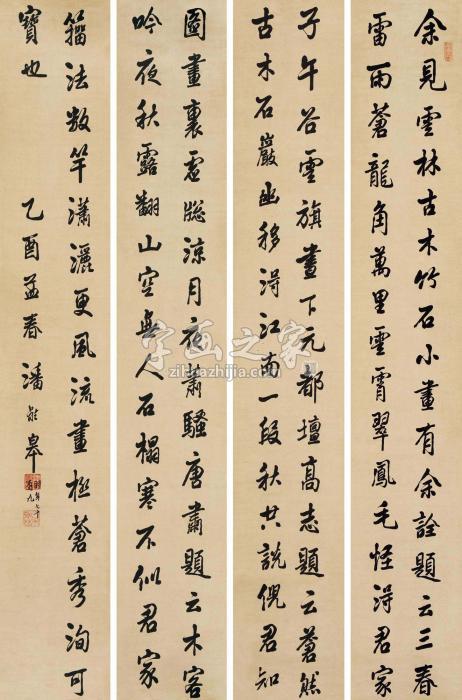 余見雲林古木竹石小畫有余詮題云三春
雷雨蒼龍角萬里雲霄翠鳳毛怪得君家
子午谷雲旗畫下元都壇高志題云蒼然
古木石巖幽移得江南一段秋共說倪君知
圖畫裏虛牕涼月夜蕭騷唐肅題云木客
吟夜秋露翻山空無人石榻寒不似君家
籀法數竿瀟灑更風流畫極蒼秀洵可
寶也 乙酉孟春 潘齡皋
時年七十有九
字画之家
zihuazhijia.com